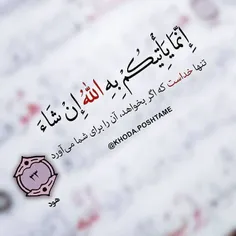 إِنَّمَا يَأْتِيكُمْ بِهِ اللَّهُ إِنْ شَاءَ
تنها خداست که اگر بخواهد، آن را برای شما می‌آورد
@KHODA.POSHTAME
۳۳
هود